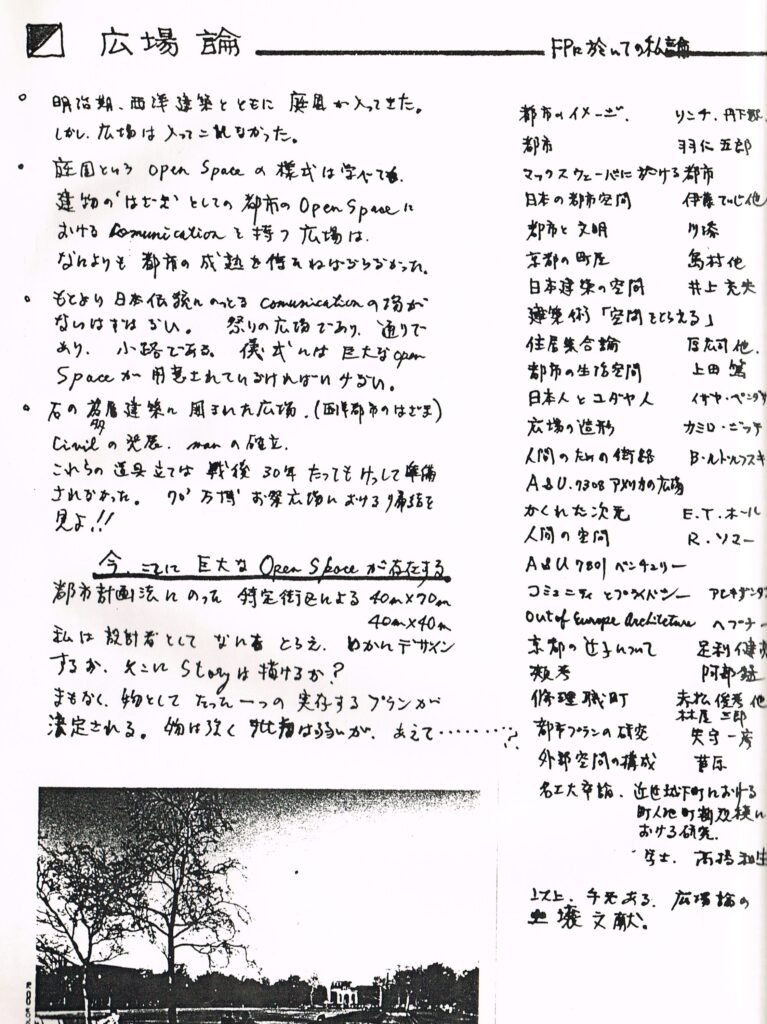 広場論
FPに於いての私論
○ 明治期、西洋建築とともに庭園が入ってきた。
しかし、広場は入ってこれなかった。
・ 庭園という Open Space の様式は学べても、
建物の"はざま"としての都市の Open Space に
おける comunication を持つ広場は、
なによりも都市の成熟を待たねばならなかった。
○ もとより日本伝統にのっとる comunication の場が
ないはずはない。 祭りの広場であり、通りで
あり、小路である。 儀式には巨大な open
Space が用意されていなければいけない。
・ 石の高層建築に囲まれた広場、(西洋都市のはざま)
Civil の発展、man の確立、
これらの道具立ては戦後30年たってもけっして準備
されなかった。 70'万博 お祭広場における帰結を
見よ!!
今、ここに 巨大な Open Space が存在する
都市計画法にのった 特定街区による 40m×70m
40m×40m
私は設計者として なにを とらえ、 デザイン
するか、そこに Story は描けるか?
まもなく、物として たった一つの 実存するプランが
決定される。 物は強く は弱いが、 あえて………?
都市のイメージ. リンチ、丹下
都市 羽仁五郎
マックスウェーバーに於ける都市
日本の都市空間 伊藤ていじ他
都市と文明 川添
京都の町屋 島村他
日本建築の空間 井上充夫
建築術「空間をとらえる」
住居集合論 原広司他.
都市の生活空間 上田篤
日本人とユダヤ人 イザヤ・ベンダサ
広場の造形 カミロ・ジッテ
人間のための街路 B・ルドルフスキ
A&U.7308 アメリカの広場
かくれた次元 E.T.ホール
人間の空間 R.ソマー
A&U 7801 ベンチュリー
コミュニティとプライバシー アレキザンダ
Out of Europe Architeture
京都の辻子について 足利健
阿部
修理職町 赤松俊秀他
林屋
都市プランの研究 矢守一彦
外部空間の構成 芦原
名工大卒論、近世城下町における
町人地町割規模に
おける研究.
学士、高橋和生
以上、手元ある、広場論の
土壌文献。